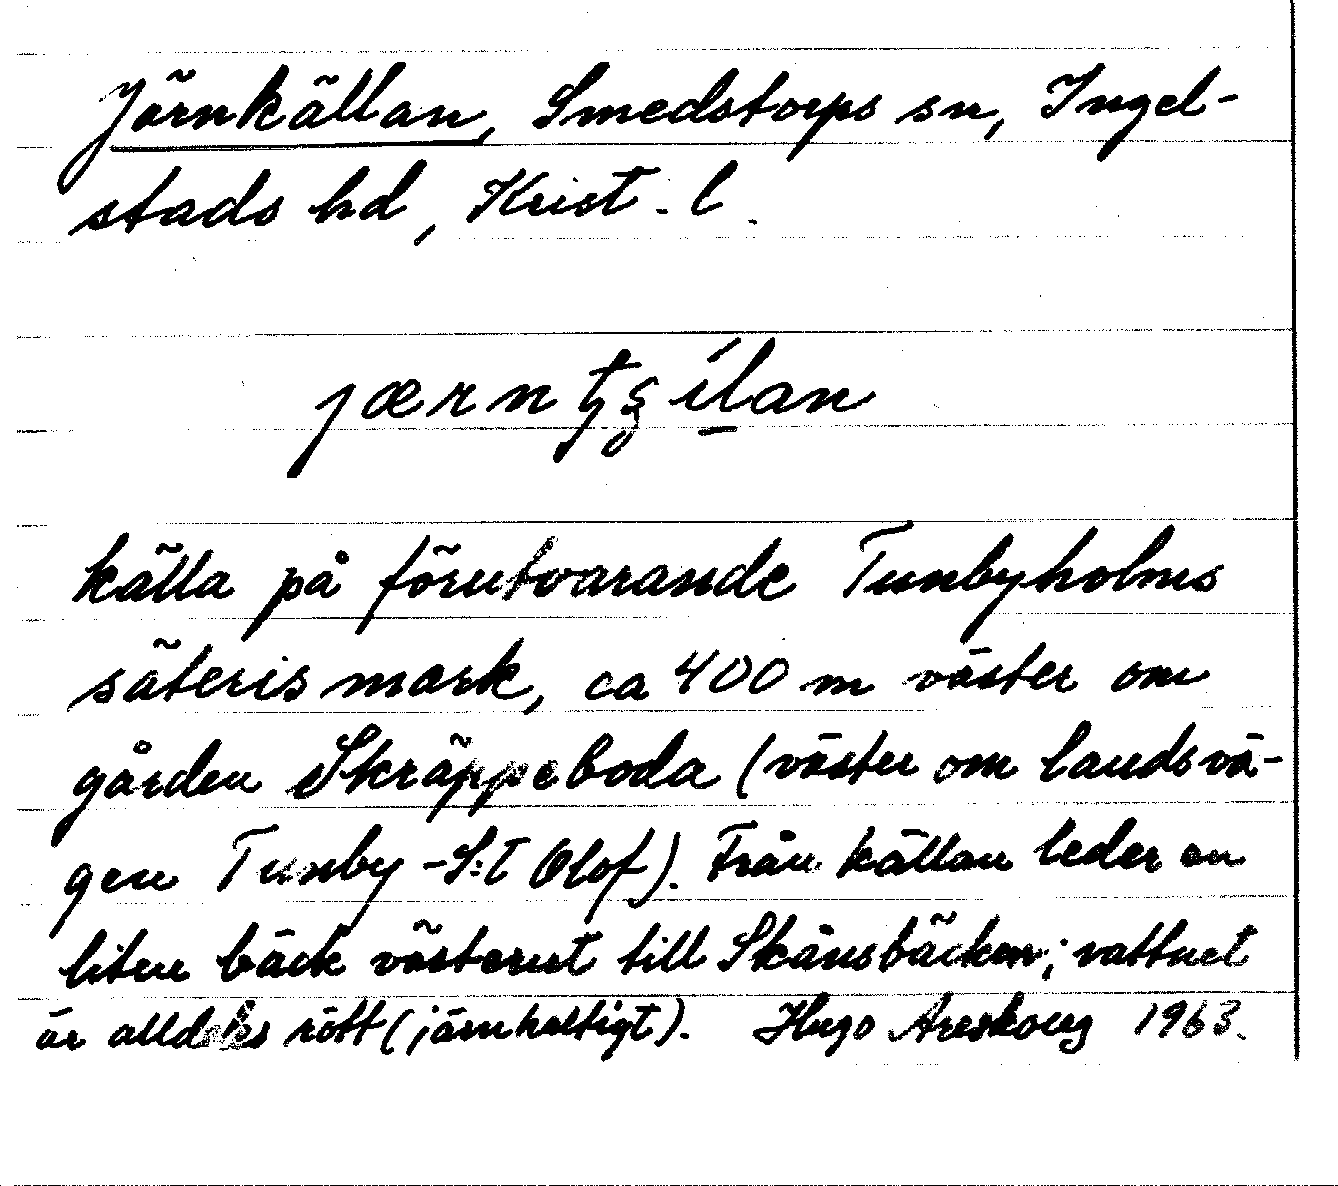 Järnkällan, Smedstorps sn, Ingel-
stads hd, Krist. l.
jærntʂílan
källa på förutvarande Tunbyholms
säteris mark, ca 400 m väster om
gården Skräppeboda (väster om landsvä-
gen Tunby - S:t Olof). Från källan leder en
liten bäck västerut till Skånsbäcken; vattnet
är alldeles rött (järnhaltigt). Hugo Areskoug 1963.